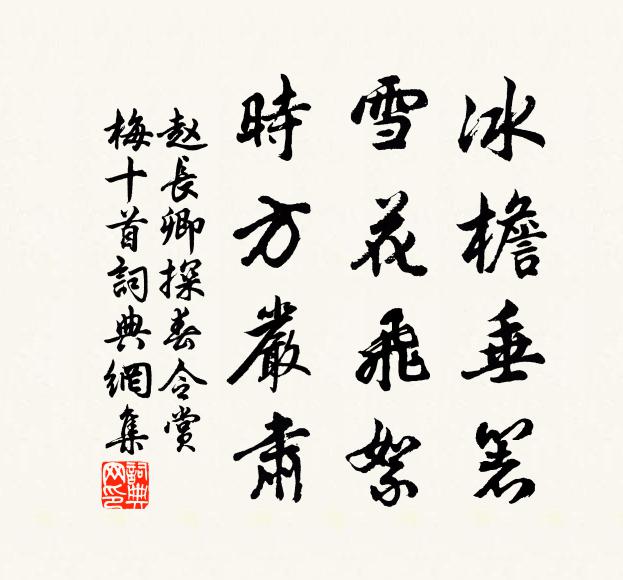 冰檐垂箸
雪花飛絮
時方嚴肅
赵長卿探春令賞
梅十首詞典網集
詞典网印